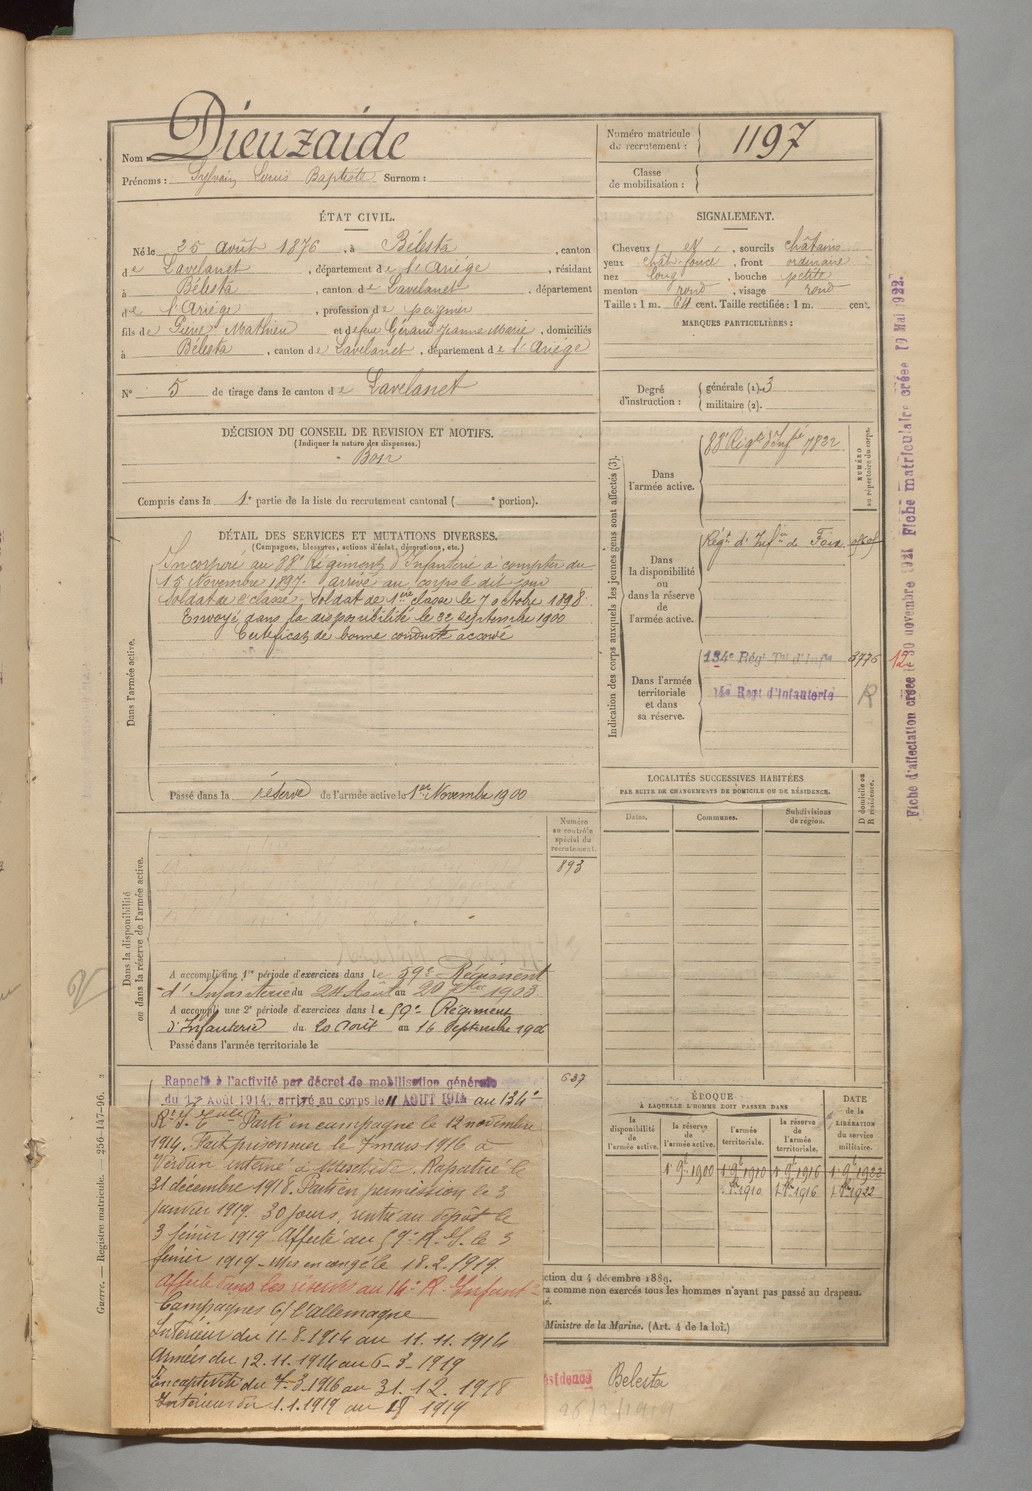 Nom Dieuzaide
Prénoms : Sylvain Louis Baptiste Surnom :
Numéro matricule du recrutement : 1197
Classe de mobilisation :
ÉTAT CIVIL.
Né le 25 août 1876, à Bélesta, canton
de Lavelanet, département de l'Ariége, résidant
à Bélesta, canton de Lavelanet, département
de l'Ariége, profession de peigneur
fils de Pierre Mathieu et de feue Géraud Jeanne Marie, domiciliés
à Bélesta, canton de Lavelanet, département de l'Ariége
N° 5 de tirage dans le canton de Lavelanet
SIGNALEMENT.
Cheveux et, sourcils châtains
yeux chât. foncé, front ordinaire
nez long, bouche petite
menton rond, visage rond
Taille : 1 m. 64 cent. Taille rectifiée : 1 m. cent.
MARQUES PARTICULIÈRES :
Degré d'instruction : générale (1). 3
militaire (2).
DÉCISION DU CONSEIL DE REVISION ET MOTIFS.
(Indiquer la nature des dispenses.)
Bon
Compris dans la 1e partie de la liste du recrutement cantonal ( e portion).
DÉTAIL DES SERVICES ET MUTATIONS DIVERSES.
(Campagnes, blessures, actions d'éclat, décorations, etc.)
Dans l'armée active.
Incorporé au 88e Régiment d'Infanterie à compter du
15 Novembre 1897. arrivé au corps le dit jour
Soldat de 2e classe. Soldat de 1ère classe le 7 octobre 1898.
Envoyé dans la disponibilité le 22 septembre 1900
Certificat de bonne conduite accordé
Passé dans la réserve de l'armée active le 1er Novembre 1900
Indication des corps auxquels les jeunes gens sont affectés (3).
NUMÉRO au répertoire du corps.
Dans l'armée active.
88e Régt d'Infie 7832
Dans la disponibilité ou dans la réserve de l'armée active.
Régt d'Infie de Foix
Dans l'armée territoriale et dans sa réserve.
134e Régt Tal d'Infie 3776 12
14e Regt d'Infanterie R
Fiche d'affectation créée le 30 novembre 1921 Fiche matriculaire créée 19 Mai 1922.
LOCALITÉS SUCCESSIVES HABITÉES
PAR SUITE DE CHANGEMENTS DE DOMICILE OU DE RÉSIDENCE.
Dates.
Communes.
Subdivisions de région.
D domicile ou R résidence.
Dans la disponibilité ou dans la réserve de l'armée active.
Numéro au contrôle spécial du recrutement.
893
A accompli une 1re période d'exercices dans le 59e Régiment
d'Infanterie du 24 Août au 20 7bre 1903
A accompli une 2e période d'exercices dans le 59e Régiment
d'Infanterie du 20 août au 16 Septembre 1906
Passé dans l'armée territoriale le
637
Rappelé à l'activité par décret de mobilisation générale
du 1er Août 1914, arrivé au corps le 11 AOUT 1914 au 134e
Rt I. Tale Parti en campagne le 12 novembre
1914. Fait prisonnier le 7 mars 1916 à
Verdun interné à Meschede. Rapatrié le
31 décembre 1918. Parti en permission le 3
janvier 1919. 30 jours, rentré au dépôt le
3 février 1919 Affecté au 59e R. I. le 3
février 1919 - Mis en congé le 18.2.1919.
Affecté dans les réserves au 14e R. Infantie
Campagnes C/ l'allemagne
Intérieur du 11.8.1914 au 11.11.1914
Armées du 12.11.1914 au 6-3-1919
En captivité du 7-3-1916 au 31.12.1918
Intérieur du 1.1.1919 au 1919
ÉPOQUE
À LAQUELLE L'HOMME DOIT PASSER DANS
la disponibilité de l'armée active.
la réserve de l'armée active.
l'armée territoriale.
la réserve de l'armée territoriale.
DATE de la LIBÉRATION du service militaire.
1r 9e 1900 1r 9e 1910 1r 9e 1916 1r 9e 1922
1910 1916 1922
ction du 4 décembre 1889.
ra comme non exercés tous les hommes n'ayant pas passé au drapeau.
Ministre de la Marine. (Art. 4 de la loi.)
sidence Belesta
Guerre. — Registre matricule. — 256-147-96.